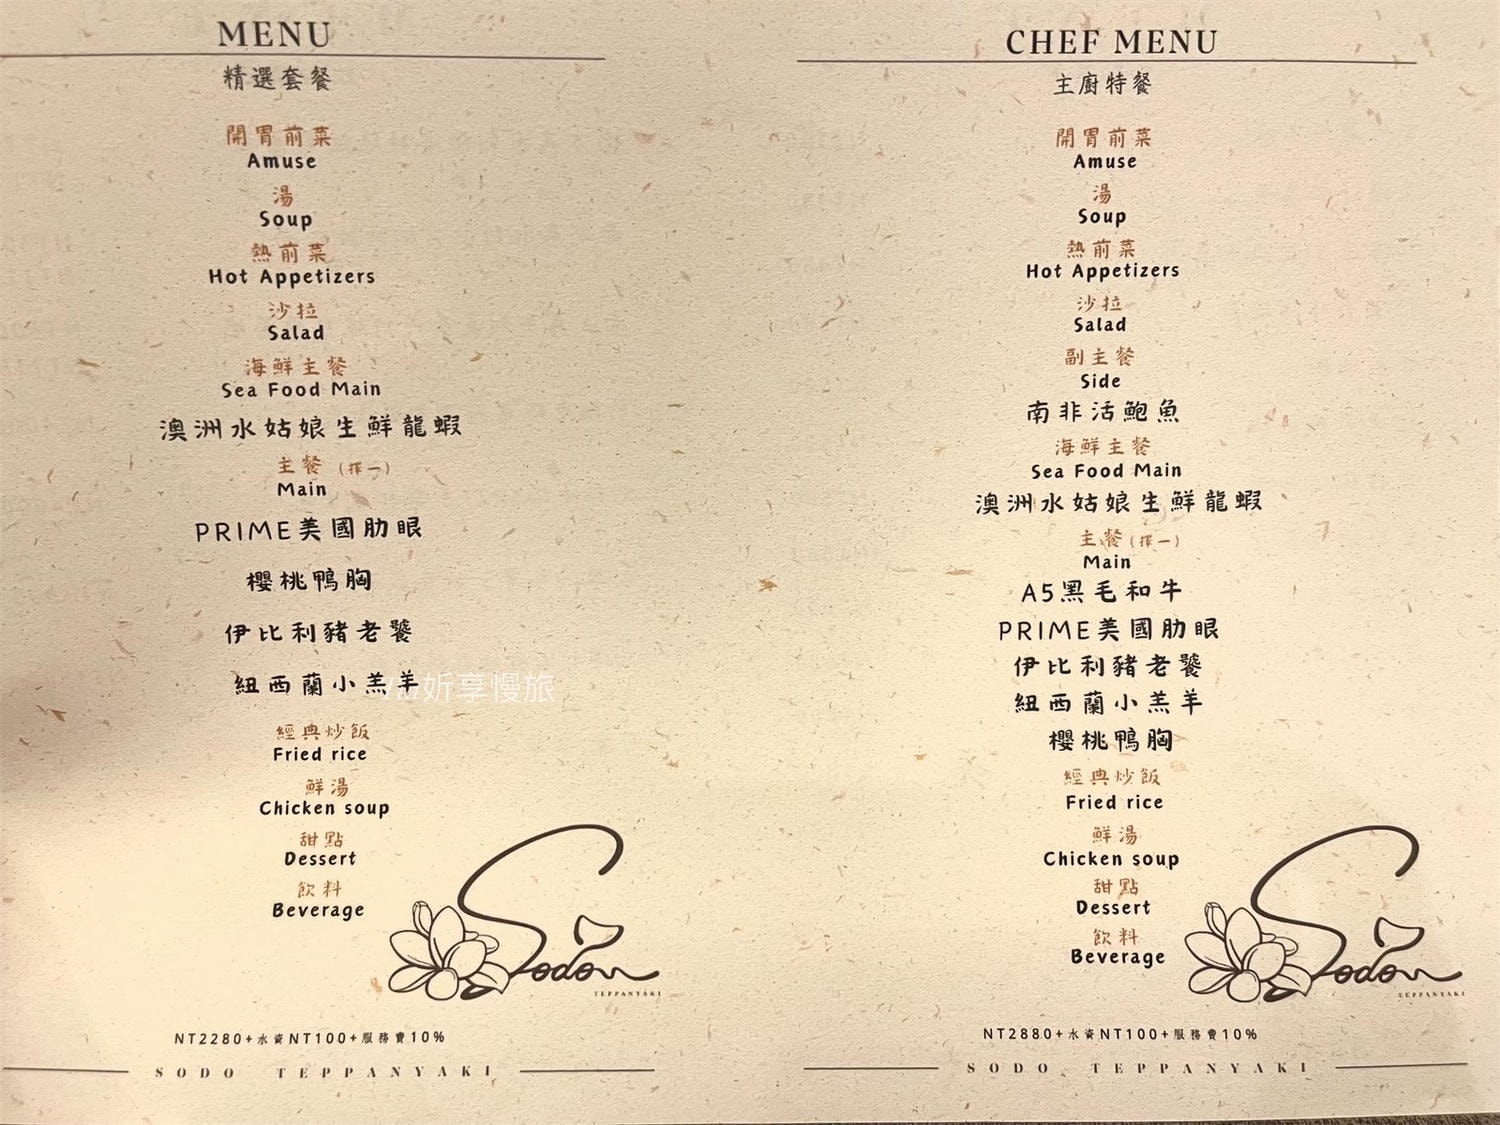 MENU
精選套餐
開胃前菜
Amuse
湯
Soup
熱前菜
Hot Appetizers
沙拉
Salad
海鮮主餐
Sea Food Main
澳洲水姑娘生鮮龍蝦
主餐(擇一)
Main
PRIME美國肋眼
櫻桃鴨胸
伊比利豬老饕
紐西蘭小羔羊
妡享慢旅
經典炒飯
Fried rice
鮮湯
Chicken soup
甜點
Dessert
飲料
Beverage
Sodou
TEPPANYAKI
NT2280+水資NT100+服務費10%
SODO TEPPANYAKI
CHEF MENU
主廚特餐
開胃前菜
Amuse
湯
Soup
熱前菜
Hot Appetizers
沙拉
Salad
副主餐
Side
南非活鮑魚
海鮮主餐
Sea Food Main
澳洲水姑娘生鮮龍蝦
主餐(擇一)
Main
A5黑毛和牛
PRIME美國肋眼
伊比利豬老饕
紐西蘭小羔羊
櫻桃鴨胸
經典炒飯
Fried rice
鮮湯
Chicken soup
甜點
Dessert
飲料
Beverage
Sodou
TEPPANYAKI
NT2880+水資NT100+服務費10%
SODO TEPPANYAKI